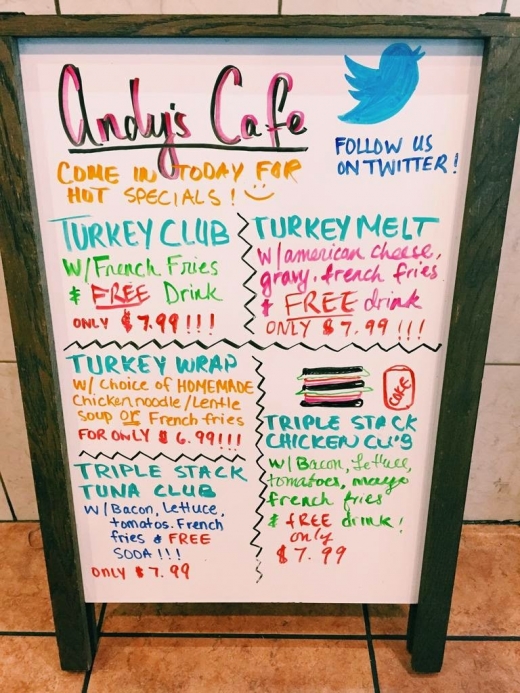 Andy's Cafe
COME IN TODAY FOR
HOT SPECIALS!
FOLLOW US
ON TWITTER!
TURKEY CLUB
W/French Fries
& FREE Drink
ONLY $7.99!!!
TURKEY MELT
W/american cheese,
gravy, french fries
& FREE drink
ONLY $7.99!!!
TURKEY WRAP
W/ choice of HOMEMADE
Chicken noodle/Lentle
Soup or French fries
FOR ONLY $6.99!!!
TRIPLE STACK
TUNA CLUB
W/Bacon, Lettuce,
tomatos. French
fries & FREE
SODA!!!
ONLY $7.99
COKE
TRIPLE STACK
CHICKEN
W/Bacon, Lettuce,
tomatoes, mayo
french fries
& fREE drink!
only
$7.99